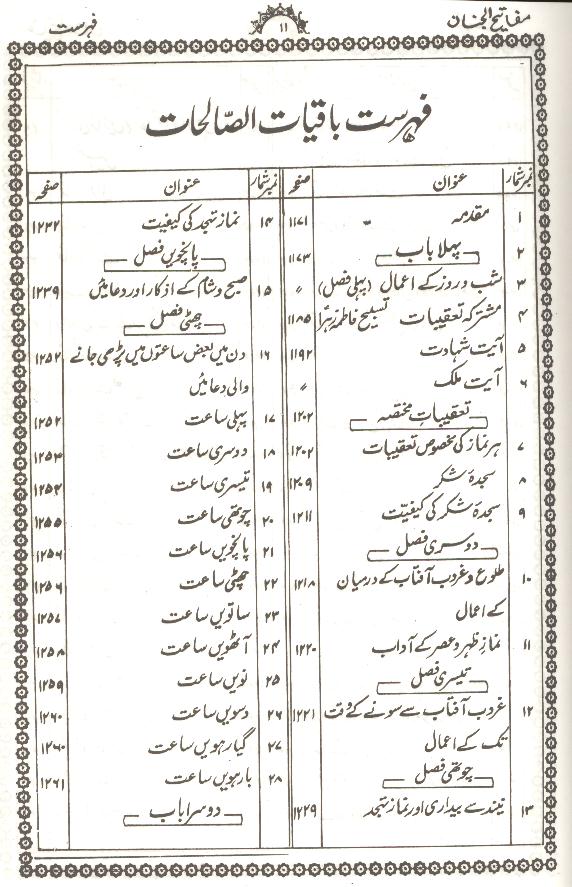 مفاتیح الجنان
۱۱
فہرست
فہرست باقیات الصّالحات
نمبر شمار عنوان صفحہ
۱ مقدمہ ۱۱۷۱
۲ پہلا باب ۱۱۷۳
۳ شب و روز کے اعمال (پہلی فصل) 〃
۴ مشترکہ تعقیبات تسبیح فاطمہ زہرؑا ۱۱۸۵
۵ آیت شہادت ۱۱۹۲
۶ آیت ملک 〃
تعقیباتِ مختصہ ۱۲۰۲
۷ ہر نماز کی مخصوص تعقیبات ۱۲۰۲
۸ سجدۂ شکر ۱۲۰۹
۹ سجدۂ شکر کی کیفیت ۱۲۱۱
دوسری فصل
۱۰ طلوع و غروب آفتاب کے درمیان ۱۲۱۸
کے اعمال
۱۱ نمازِ ظہر و عصر کے آداب ۱۲۲۰
تیسری فصل
۱۲ غروب آفتاب سے سونے کے وقت ۱۲۲۱
تک کے اعمال
چوتھی فصل
۱۳ نیند سے بیداری اور نماز تہجد ۱۲۲۹
نمبر شمار عنوان صفحہ
۱۴ نماز تہجد کی کیفیت ۱۲۳۲
پانچویں فصل
۱۵ صبح و شام کے اذکار اور دعائیں ۱۲۳۹
چھٹی فصل
۱۶ دن میں بعض ساعتوں میں پڑھی جانے ۱۲۵۲
والی دعائیں
۱۷ پہلی ساعت ۱۲۵۲
۱۸ دوسری ساعت ۱۲۵۳
۱۹ تیسری ساعت ۱۲۵۴
۲۰ چوتھی ساعت ۱۲۵۵
۲۱ پانچویں ساعت ۱۲۵۶
۲۲ چھٹی ساعت ۱۲۵۶
۲۳ ساتویں ساعت ۱۲۵۷
۲۴ آٹھویں ساعت ۱۲۵۸
۲۵ نویں ساعت ۱۲۵۹
۲۶ دسویں ساعت ۱۲۶۰
۲۷ گیارہویں ساعت ۱۲۶۰
۲۸ بارہویں ساعت ۱۲۶۱
دوسرا باب